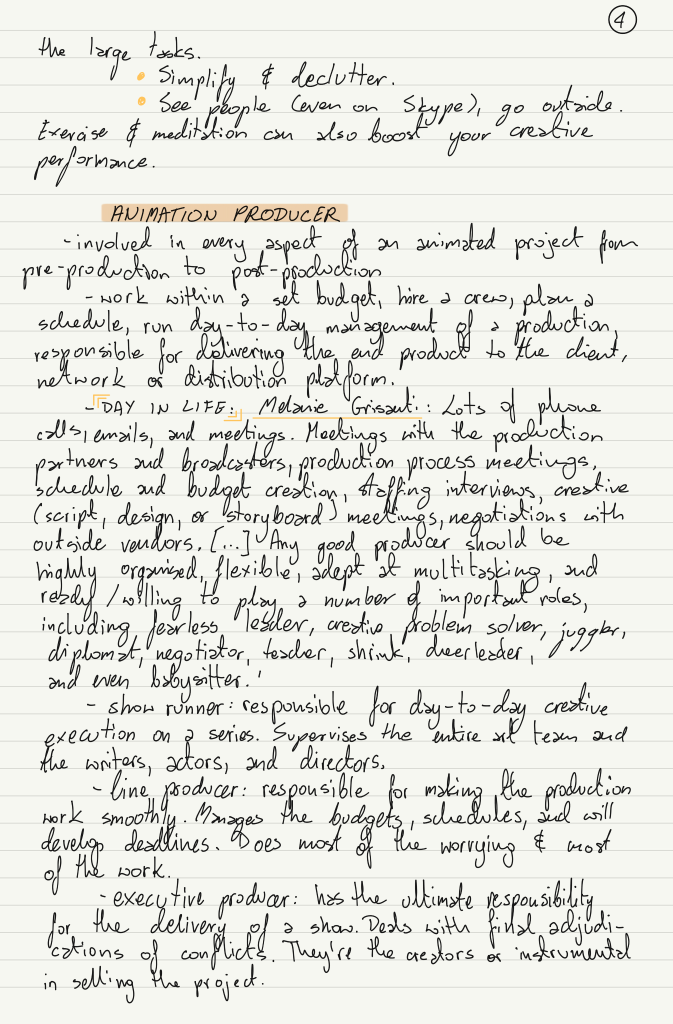 4
the large tasks.
• Simplify & declutter.
• See people (even on Skype), go outside.
Exercise & meditation can also boost your creative
performance.
ANIMATION PRODUCER
- involved in every aspect of an animated project from
pre-production to post-production
- work within a set budget, hire a crew, plan a
schedule, run day-to-day management of a production,
responsible for delivering the end product to the client,
network or distribution platform.
- DAY IN LIFE: Melanie Grisanti: Lots of phone
calls, emails, and meetings. Meetings with the production
partners and broadcasters, production process meetings,
schedule and budget creation, staffing interviews, creative
(script, design, or storyboard) meetings, negotiations with
outside vendors. [...] Any good producer should be
highly organised, flexible, adept at multitasking, and
ready / willing to play a number of important roles,
including fearless leader, creative problem solver, juggler,
diplomat, negotiator, teacher, shrink, cheerleader,
and even babysitter.'
- show runner: responsible for day-to-day creative
execution on a series. Supervises the entire art team and
the writers, actors, and directors.
- line producer: responsible for making the production
work smoothly. Manages the budgets, schedules, and will
develop deadlines. Does most of the worrying & most
of the work.
- executive producer: has the ultimate responsibility
for the delivery of a show. Deals with final adjudi-
cations of conflicts. They're the creators or instrumental
in selling the project.